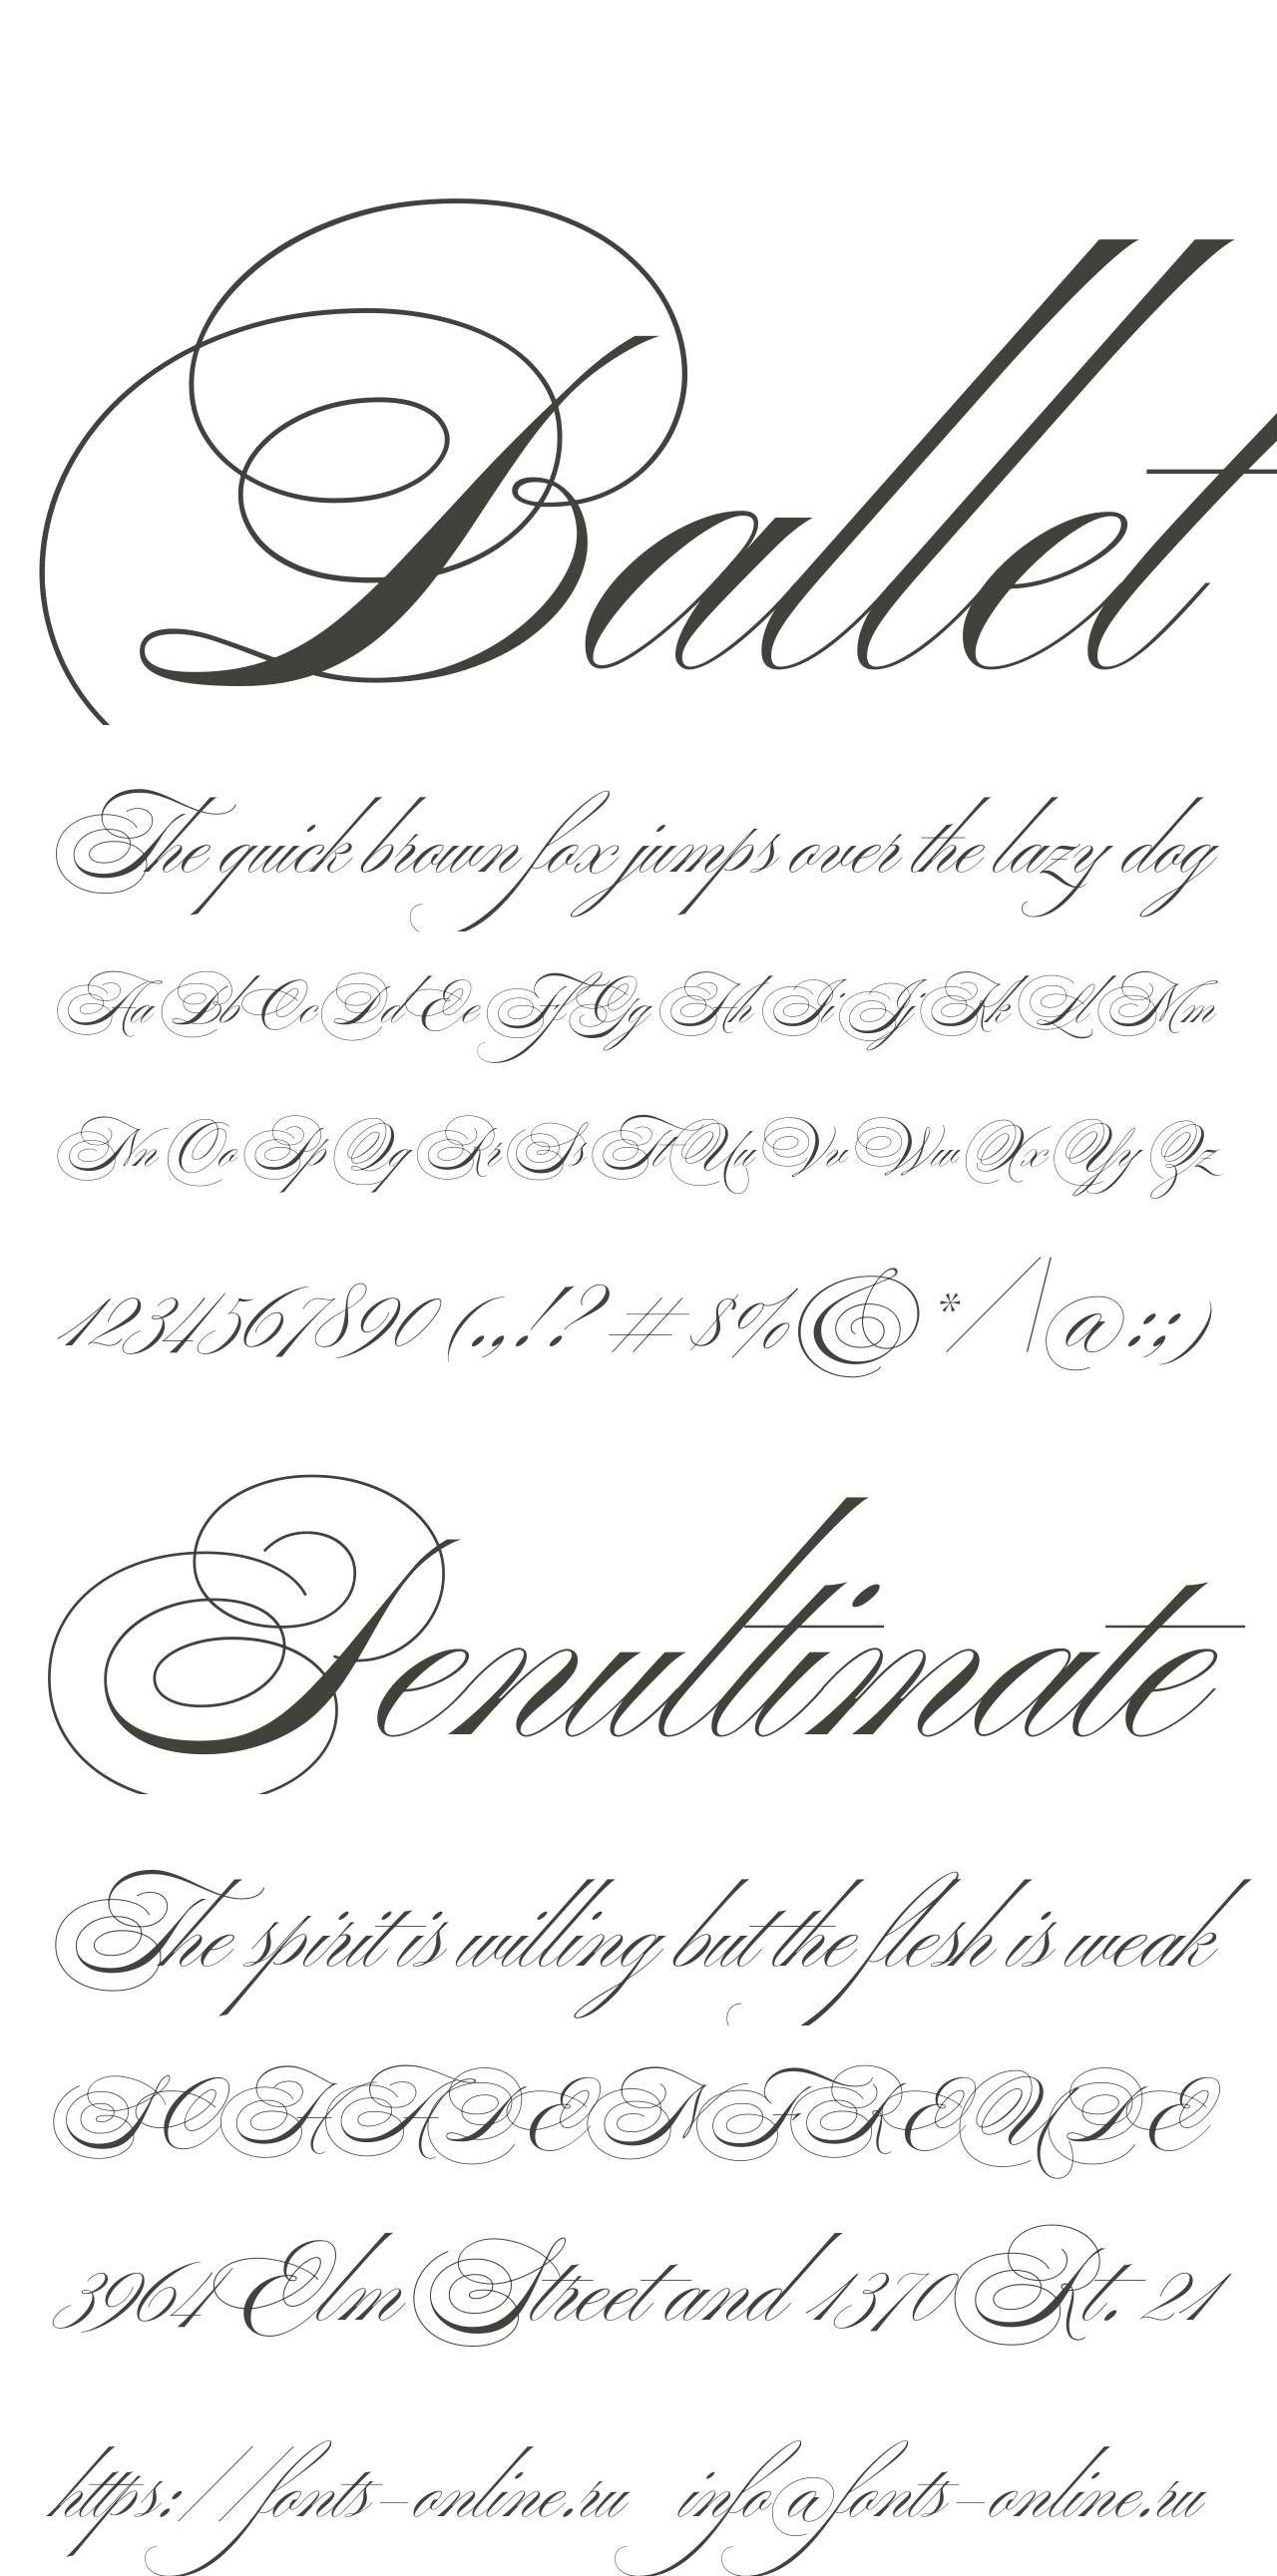 Ballet
The quick brown fox jumps over the lazy dog
Aa Bb Cc Dd Ee Ff Gg Hh Ii Jj Kk Ll Mm
Nn Oo Pp Qq Rr Ss Tt Uu Vv Ww Xx Yy Zz
1234567890 (.,!? # $% & * / \ @ : ; )
Penultimate
The spirit is willing but the flesh is weak
SCHADENFREUDE
3964 Elm Street and 1370 Rt. 21
https://fonts-online.ru info@fonts-online.ru